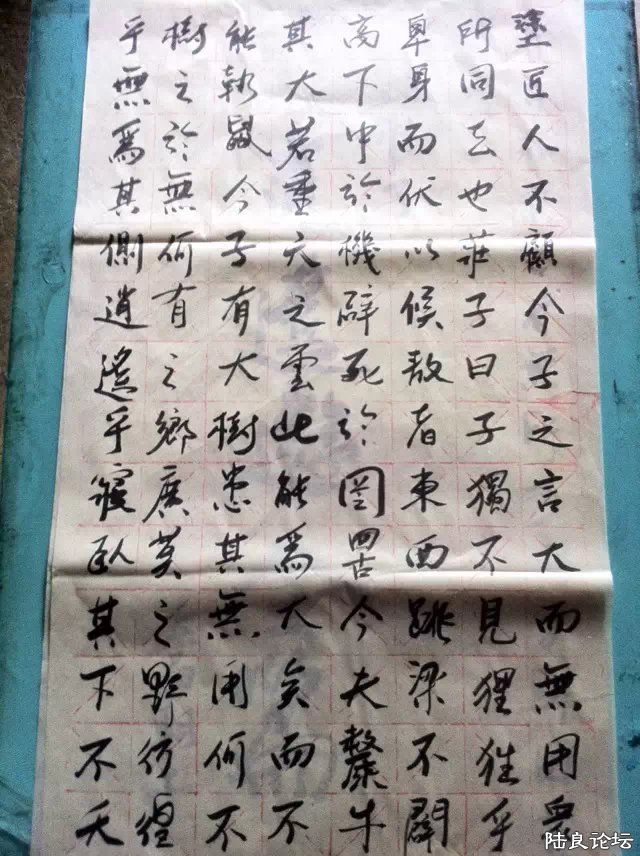 塗匠人不顧今子之言大而無用眾
所同去也莊子曰子獨不見狸狌乎
卑身而伏以候敖者東西跳梁不闢
高下中於機辭死於罔罟今夫斄牛
其大若垂天之雲此能為大矣而不
能執鼠今子有大樹患其無用何不
樹之於無何有之鄉廣莫之野彷徨
乎無為其側逍遙乎寢臥其下不夭
陆良论坛